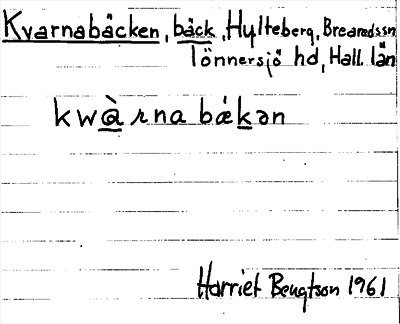 Kvarnabäcken, bäck, Hylteberg, Brearedssn
Tönnersjö hd, Hall. län
kwàrnabǽkən
Harriet Bengtson 1961